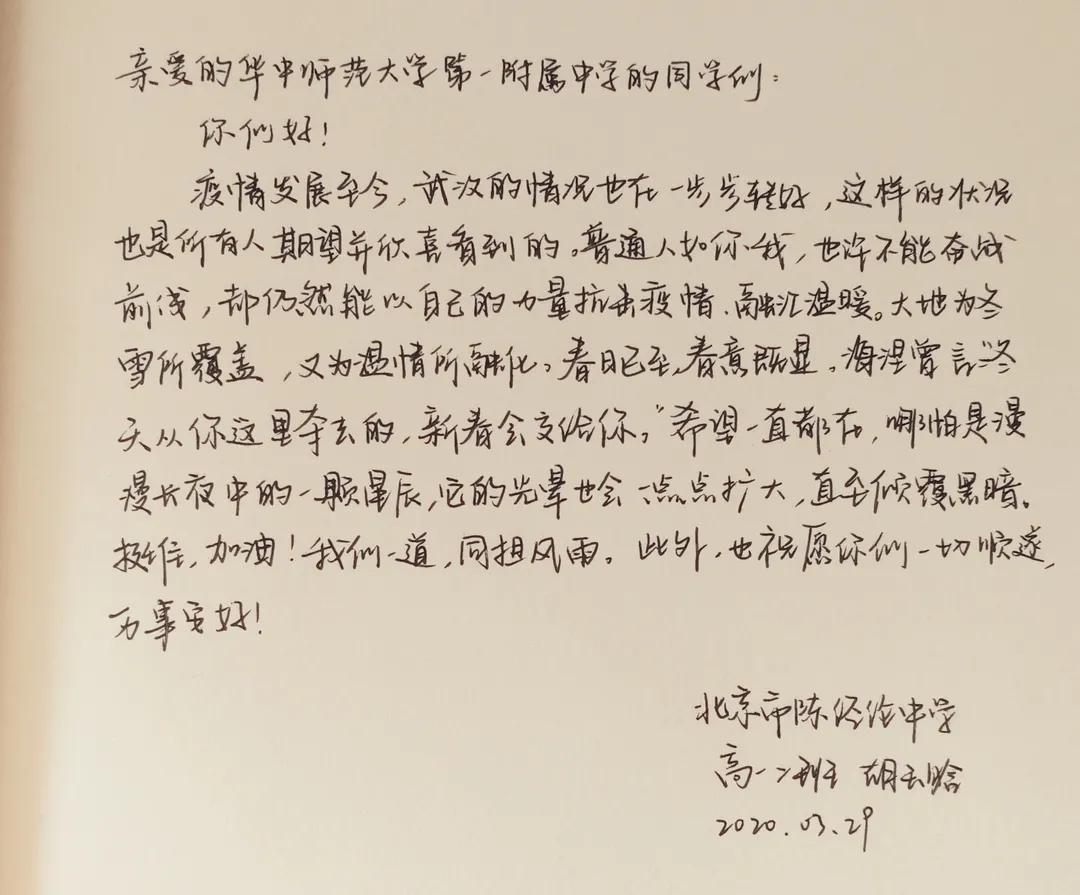 亲爱的华中师范大学第一附属中学的同学们：
你们好！
疫情发展至今，武汉的情况也在一步步转好，这样的状况
也是所有人期望并欣喜看到的。普通人如你我，也许不能奋战
前线，却仍然能以自己的力量抗击疫情、融汇温暖。大地为冬
雪所覆盖，又为温情所融化。春日已至，春意既显。海涅曾言“冬
天从你这里夺去的，新春会交给你。”希望一直都在，哪怕是漫
漫长夜中的一颗星辰，它的光晕也会一点点扩大，直至倾覆黑暗。
挺住，加油！我们一道，同担风雨。此外，也祝愿你们一切顺遂，
万事安好！
北京市陈经纶中学
高一2班 胡云晗
2020.03.29